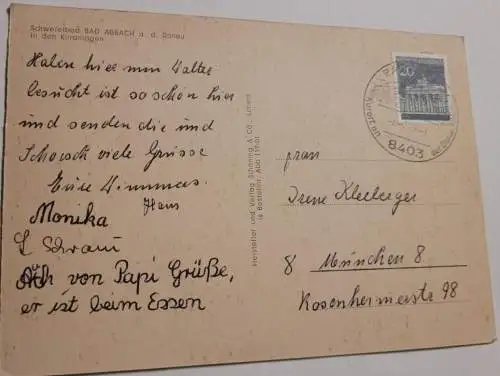 Schwefelbad BAD ABBACH a. d. Donau
In den Kuranlagen
Haben hier nun Walter
besucht ist so schön hier
und senden die und
Schorsch viele Grüsse
Eure
Hans
Monika
Auch von Papi Grüße,
er ist beim Essen
Hersteller und Verlag Schöning & Co., Lübeck
Bestellnr.
20
8403
Kurort
Frau
Irene Kleeberger
8 München 8
Rosenheimerstr 98